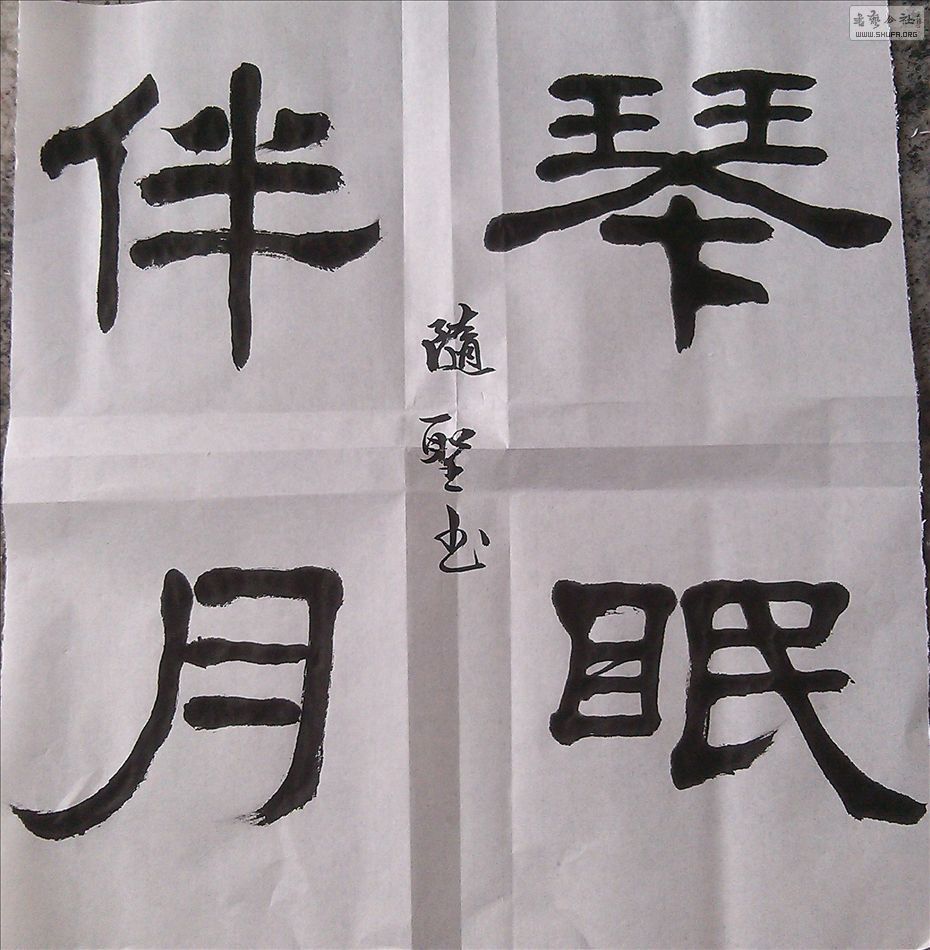 琴眠
伴月
隨聖书
书艺公社
WWW.SHUFA.ORG